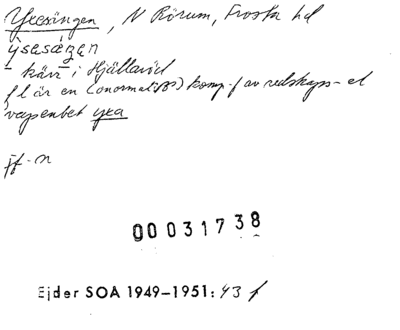 Yxesängen, N Rörum, Frosta hd
ÿsesäŋen
- kärr i Hjällaröd
f l är en (onormal) komp-f av redskaps- el
vapenbet yxa
ff-n
00031738
Ejder SOA 1949–1951: 43 f